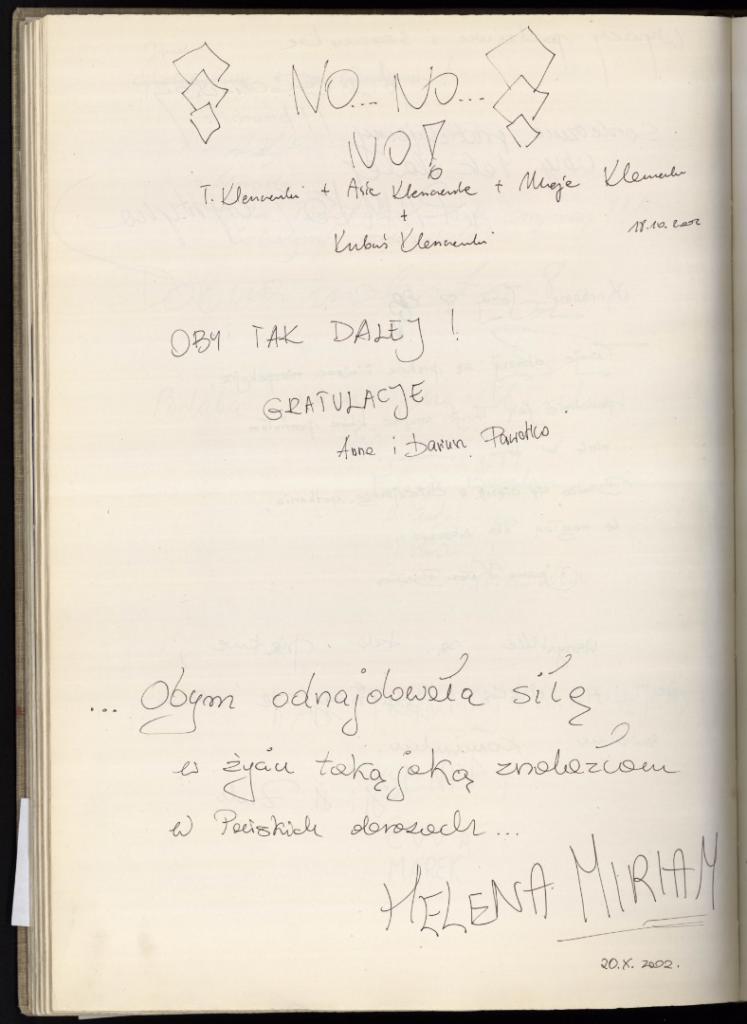 NO... NO...
NO!
T. Klenowski + Asia Klenowska + Klenowska
+
Kubuś Klenowski
18.10.2002
OBY TAK DALEJ!
GRATULACJE
Anna i Dariusz
... Obym odnajdowała siłę
w życiu taką jaką znalazłam
w Pańskich obrazach...
HELENA MIRIAM
20.X.2002.